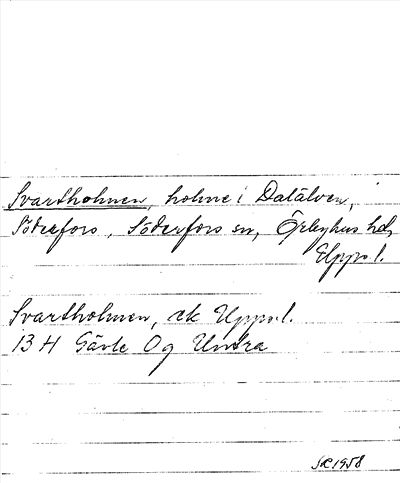 Svartholmen, holme i Dalälven,
Söderfors, Söderfors sn, Örbyhus hd,
Upps.l.
Svartholmen, ek Upps.l.
13 H Gävle Og Untra
SK 1958